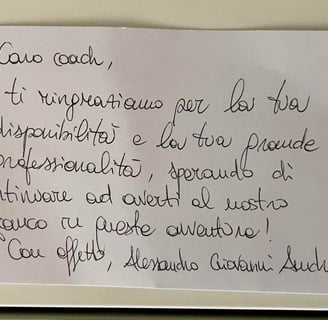 Caro coach,
ti ringraziamo per la tua
disponibilità e la tua grande
professionalità, sperando di
ntinuare ad averti al nostro
anco in queste avventure!
Con affetto, Alessandro Giovanni